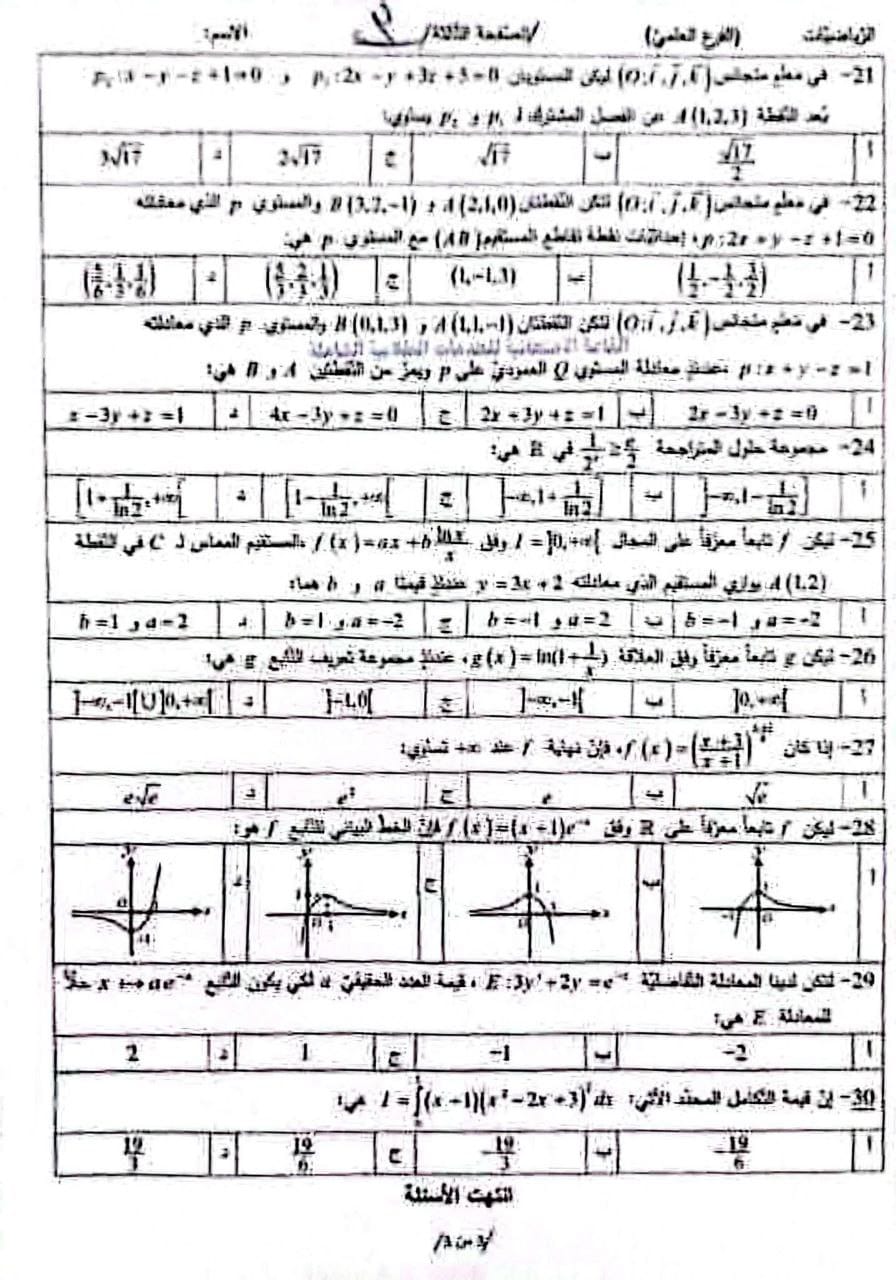 الرياضيات (الفرع العلمي) /الصفحة الثالثة/ الاسم:
21- في معلم متجانس (O; i, j, k) ليكن المستويان p₁: 2x − y + 3z + 5 = 0 و p₂: x − y − z + 1 = 0
بُعد النقطة A(1,2,3) عن الفصل المشترك لـ p₁ و p₂ يساوي:
أ √17/2 ب √17 ج 2√17 د 3√17
22- في معلم متجانس (O; i, j, k) لتكن النقطتان A(2,1,0) و B(3,2,−1) والمستوي p الذي معادلته
p: 2x + y − z + 1 = 0، إحداثيات نقطة تقاطع المستقيم (AB) مع المستوي p هي:
أ (1/2, −1/2, 3/2) ب (1,−1,3) ج (5/3, 2/3, 1/3) د (5/6, 1/3, 1/6)
23- في معلم متجانس (O; i, j, k) لتكن النقطتان A(1,1,−1) و B(0,1,3) والمستوي p الذي معادلته
p: x + y − z = 1 عندئذٍ معادلة المستوي Q العمودي على p ويمرّ من النقطتين A و B هي:
أ 2x − 3y + z = 0 ب 2x + 3y + z = 1 ج 4x − 3y + z = 0 د x − 3y + z = 1
24- مجموعة حلول المتراجحة 1/2ˣ ≥ e/2 في R هي:
أ ]−∞, 1 − 1/ln2] ب ]−∞, 1 + 1/ln2] ج [1 − 1/ln2, +∞[ د [1 + 1/ln2, +∞[
25- ليكن f تابعاً معرّفاً على المجال I = ]0,+∞[ وفق f(x) = ax + b ln x/x المستقيم المماس لـ C في النقطة
A(1,2) يوازي المستقيم الذي معادلته y = 3x + 2 عندئذٍ قيمتا a و b هما:
أ a = −2 و b = −1 ب a = 2 و b = −1 ج a = −2 و b = 1 د a = 2 و b = 1
26- ليكن g تابعاً معرّفاً وفق العلاقة g(x) = ln(1 + 1/x)، عندئذٍ مجموعة تعريف التابع g هي:
أ ]0,+∞[ ب ]−∞,−1[ ج ]−1,0[ د ]−∞,−1[∪]0,+∞[
27- إذا كان f(x) = ((x+3)/(x+1))، فإنّ نهاية f عند +∞ تساوي:
أ √e ب e ج e² د e√e
28- ليكن f تابعاً معرّفاً على R وفق f(x) = (x + 1)e⁻ˣ فإنّ الخط البياني للتابع f هو:
أ ب ج د
29- لتكن لدينا المعادلة التفاضلية E: 3y′ + 2y = e⁻ˣ، قيمة العدد الحقيقي a لكي يكون التابع x ↦ ae⁻ˣ حلاً
للمعادلة E هي:
أ −2 ب −1 ج 1 د 2
30- إنّ قيمة التكامل المحدد الآتي: I = ∫(x − 1)(x² − 2x + 3)² dx هي:
أ −19/6 ب −19/3 ج 19/6 د 19/3
انتهت الأسئلة